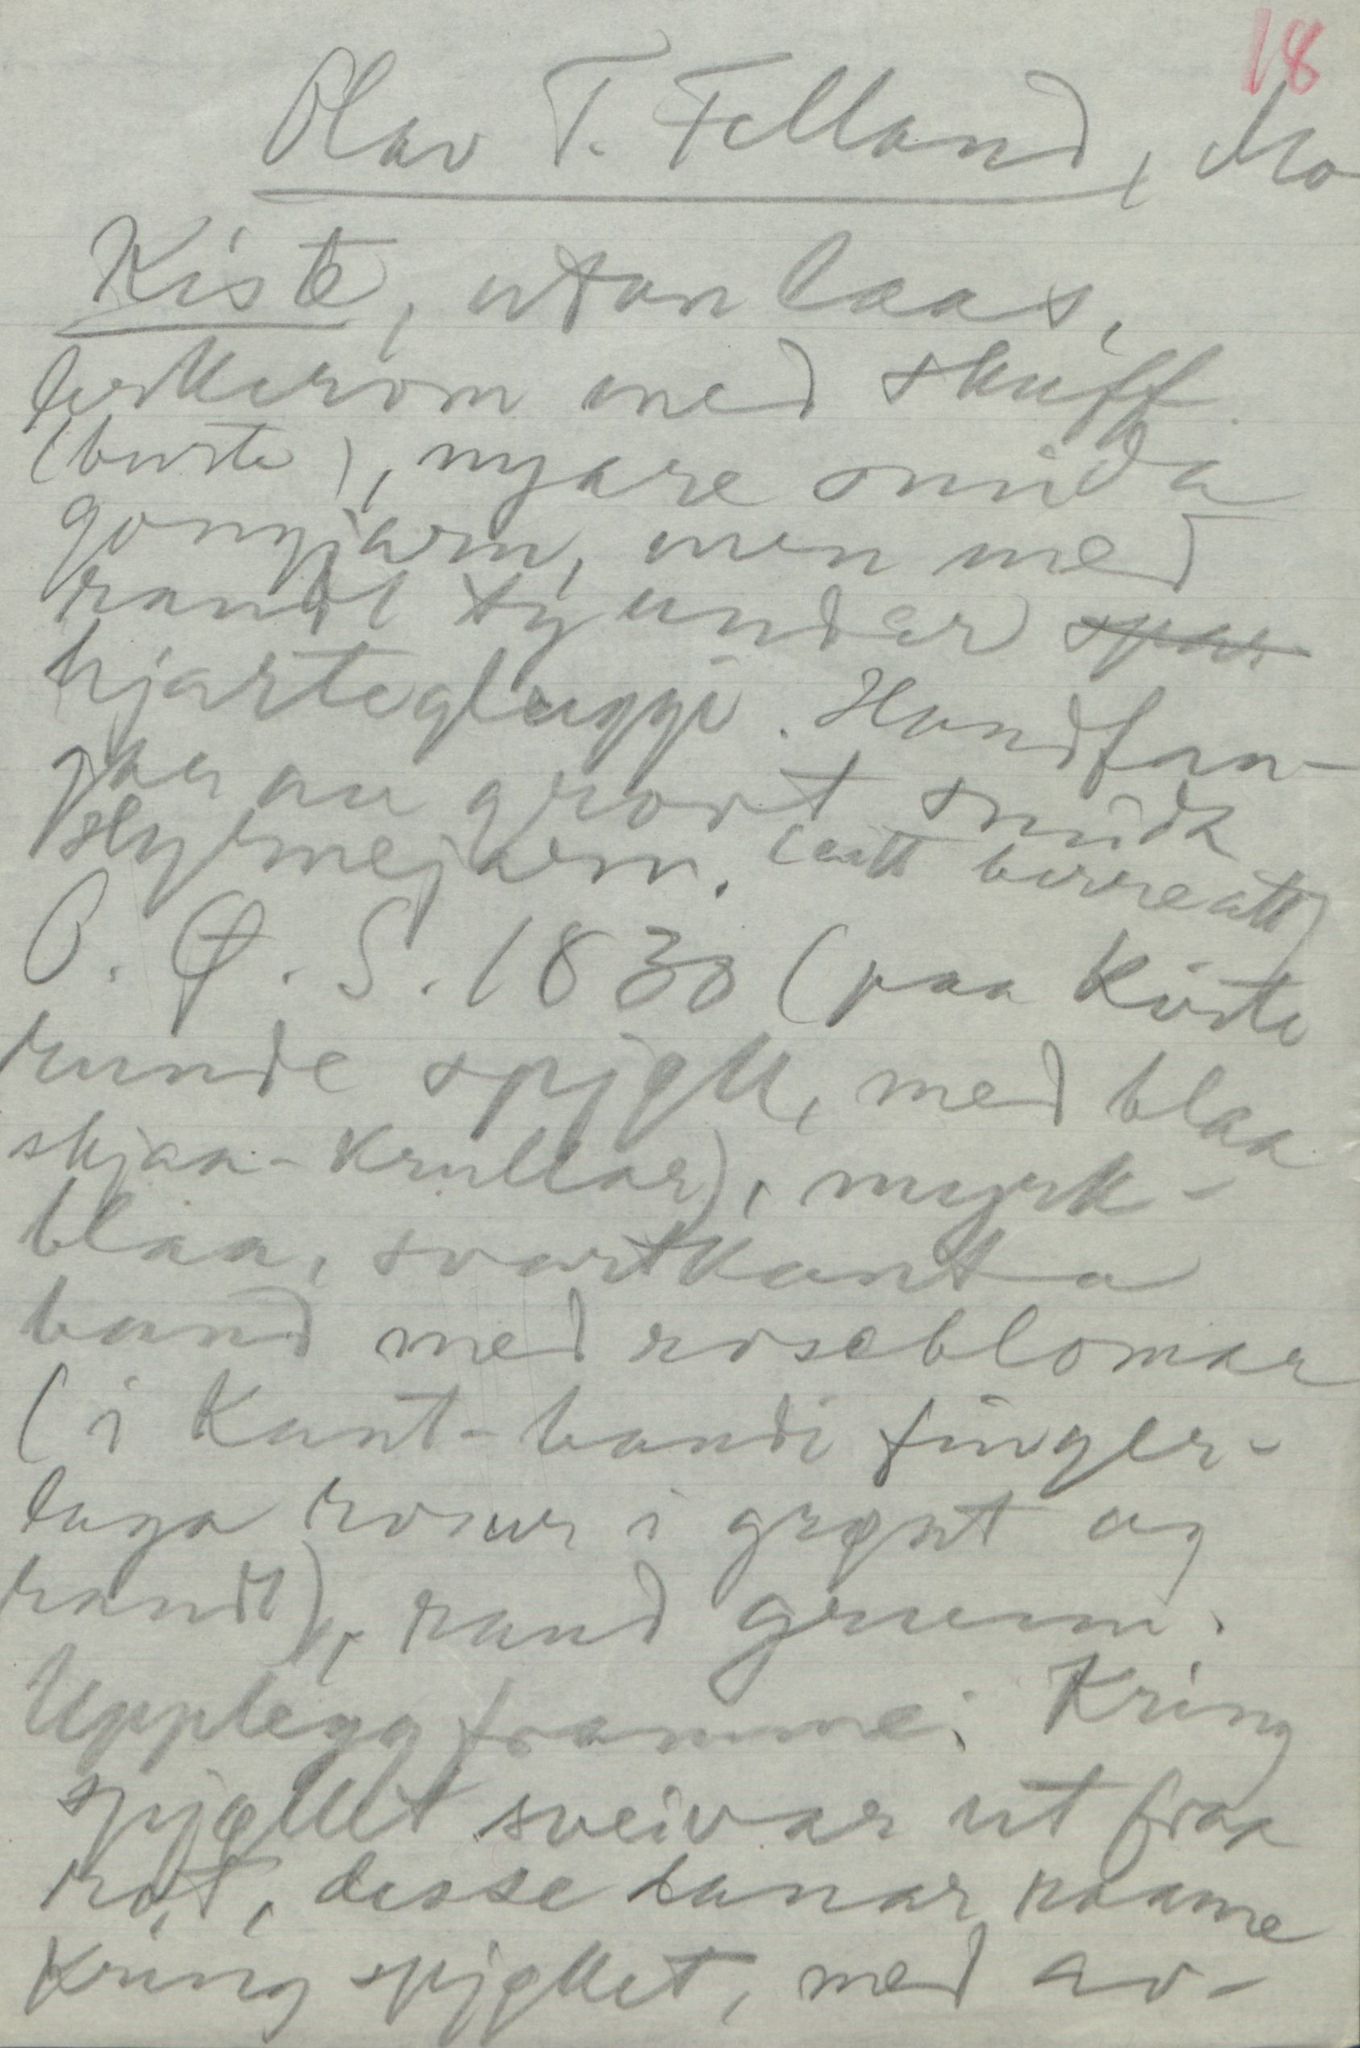 18
Olav T. Felland, Mo
Kiste, utan laas,
leikerom med skuff
(burte), nyare smida
gongjarn, men med
raudt ty under spu
hjartegluggi. Handfan-
gaa au grovt smida
styrmejarn. (eitt burreatt)
O. Ø. S. 1830 (paa kiste
runde spjøll, med blaa
skjaa-krullar), myrk-
blaa, svartkanta
band med roseblomar
(i kant-bandi finger-
laga rosur i grønt og
raudt), raud grunn.
Upplegg framme: Kring
spjøllet sveivar ut fraa
rot, desse lanar raame
kring spjøllet, med av-